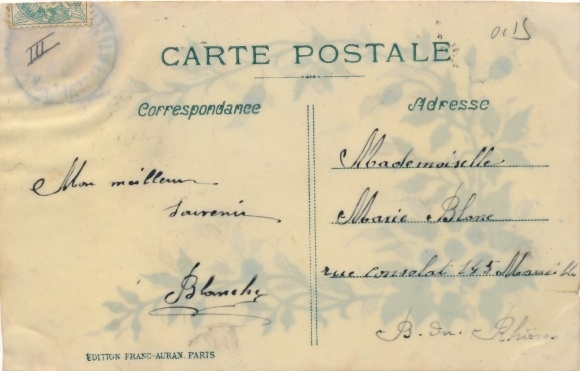 III
0015
CARTE POSTALE
Correspondance
Adresse
Mon meilleur
souvenir
Blanche
Mademoiselle
Marie Blanc
rue consolat 145 Marseille
B. du Rhône
EDITION FRANC-AURAN. PARIS